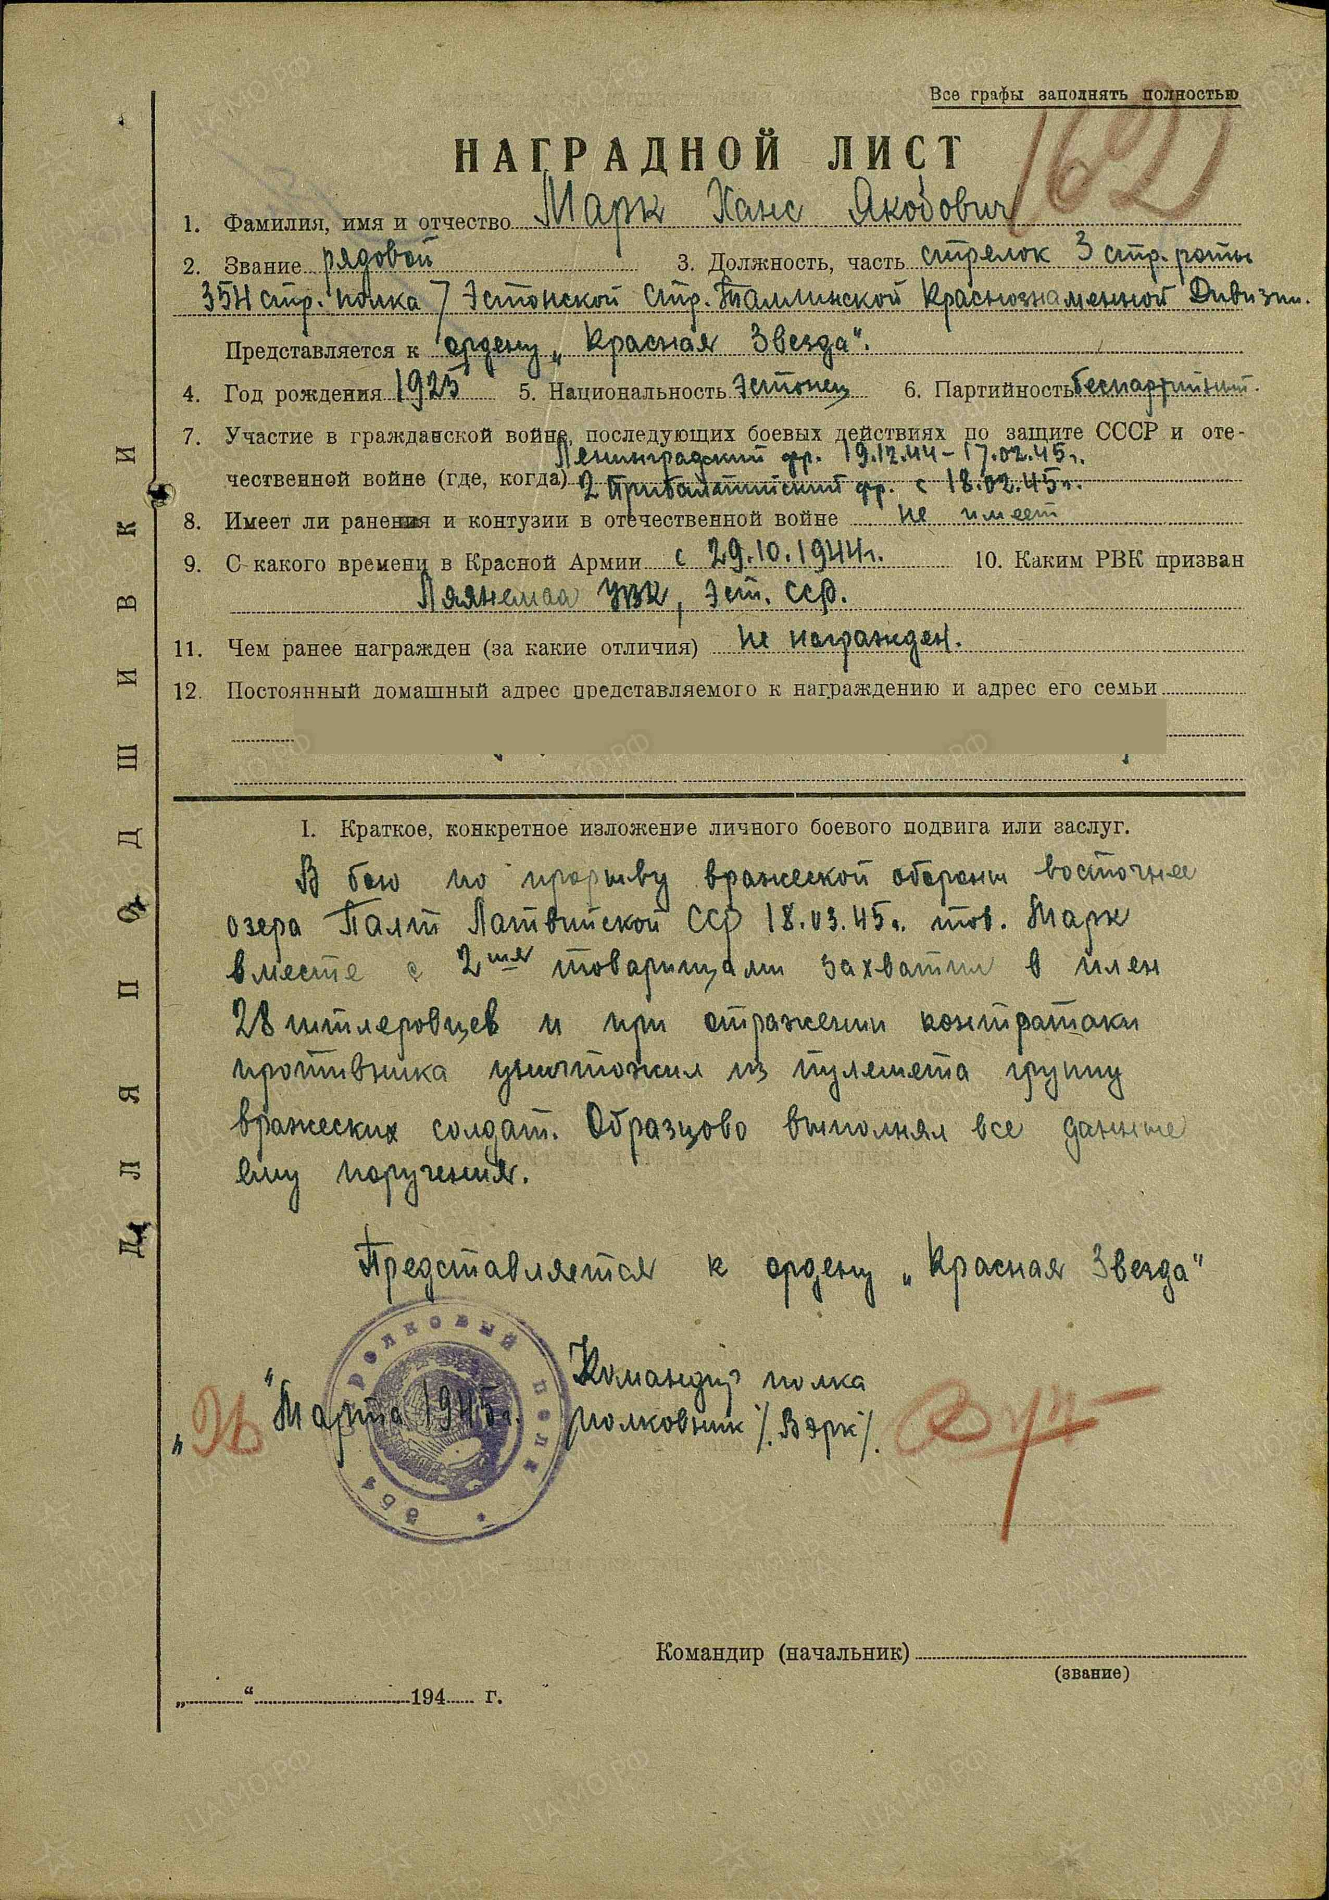 Все графы заполнять полностью
162
НАГРАДНОЙ ЛИСТ
1. Фамилия, имя и отчество Марк Ханс Якобович
2. Звание рядовой 3. Должность, часть стрелок 3 стр. роты
354 стр. полка 7 Эстонской Стр. Таллинской Краснознаменной Дивизии.
Представляется к ордену „Красная Звезда".
4. Год рождения 1925 5. Национальность Эстонец 6. Партийность беспартийный.
7. Участие в гражданской войне, последующих боевых действиях по защите СССР и оте-
Ленинградский фр. 19.12.44 - 17.02.45г.
чественной войне (где, когда) 2 Прибалтийский фр. с 18.02.45г.
8. Имеет ли ранения и контузии в отечественной войне не имеет
9. С какого времени в Красной Армии с 29.10.1944г. 10. Каким РВК призван
Ляянемаа УВК, Эст. ССР.
11. Чем ранее награжден (за какие отличия) не награжден.
12. Постоянный домашный адрес представляемого к награждению и адрес его семьи
I. Краткое, конкретное изложение личного боевого подвига или заслуг.
В бою по прорыву вражеской обороны восточнее
озера Палт Латвийской ССР 18.03.45г. тов. Марк
вместе с 2мя товарищами захватил в плен
28 гитлеровцев и при отражении контратаки
противника уничтожил из пулемета группу
вражеских солдат. Образцово выполнял все данные
ему поручения.
Представляется к ордену „Красная Звезда"
Командир полка
„26" Марта 1945г. полковник /. Вэрк /.
354 стрелковый полк
Командир (начальник)
(звание)
„ " 194 г.
ДЛЯ ПОДШИВКИ
ПАМЯТЬ НАРОДА
ЦАМО.РФ